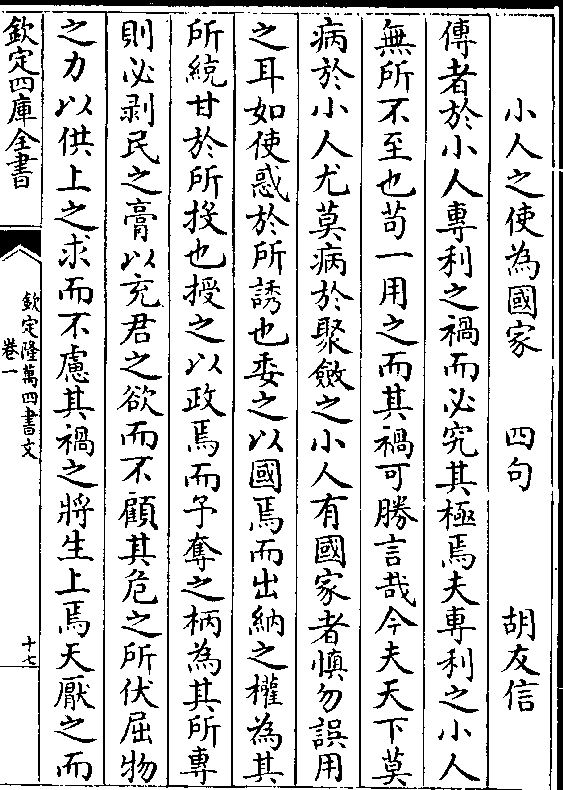 小人之使為國家　四句　胡友信
傳者於小人專利之禍而必究其極焉夫專利之小人
無所不至也苟一用之而其禍可勝言哉今夫天下莫
病於小人尤莫病於聚斂之小人有國家者慎勿誤用
之耳如使惑於所誘也委之以國焉而出納之權為其
所統甘於所投也授之以政焉而予奪之柄為其所專
則必剥民之膏以充君之欲而不顧其危之所伏屈物
之力以供上之求而不慮其禍之將生上焉天厭之而
欽定四庫全書
欽定隆萬四書文
卷一
十七